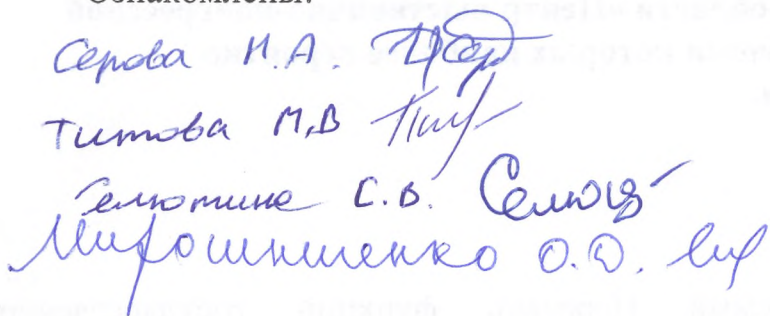 Ознакомлены:
Серова Н.А.
Титова М.В
Селютина С.В.
Мирошниченко О.О.